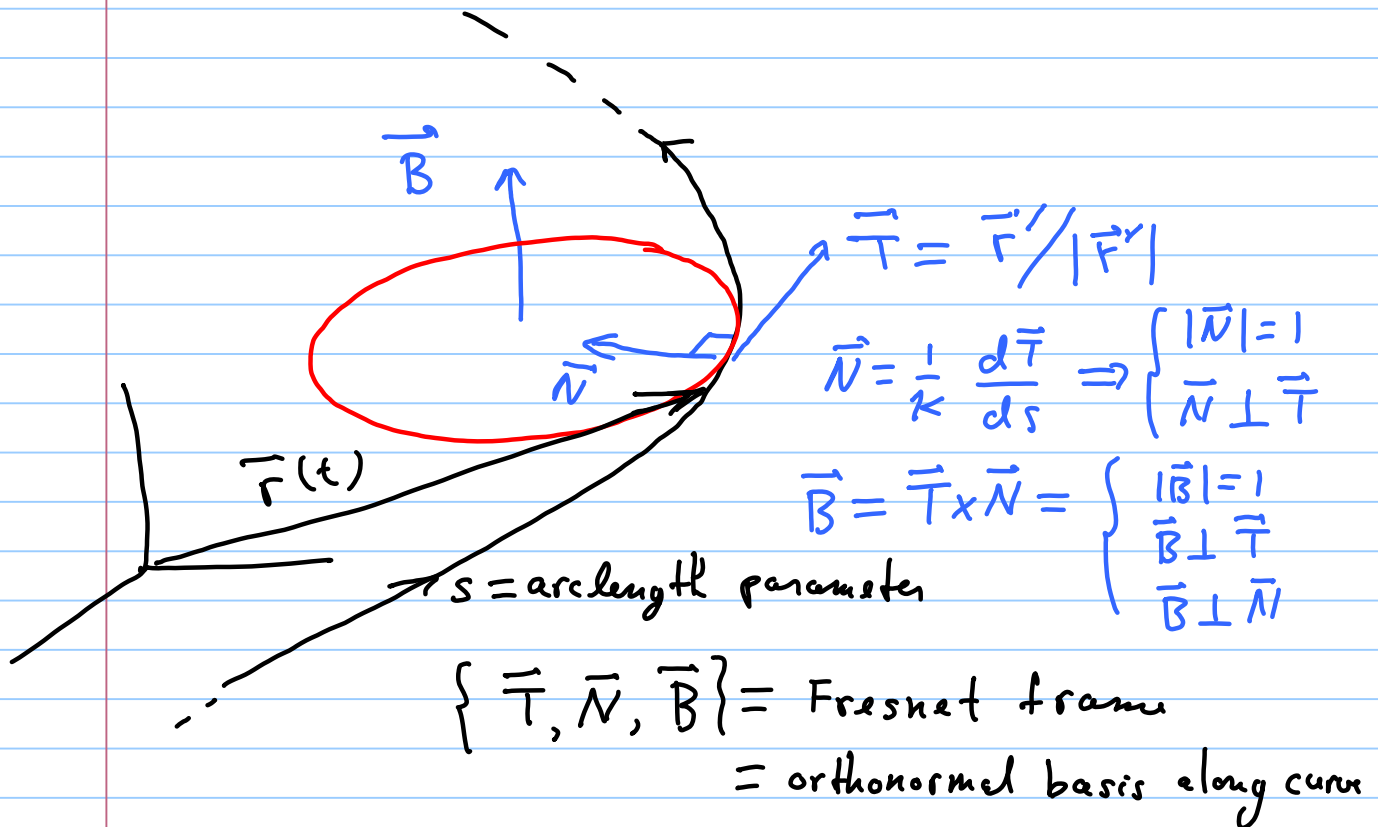 B⃗
T⃗ = r⃗'/|r⃗'|
N⃗ = 1/κ dT⃗/ds ⇒ { |N⃗| = 1
N⃗ ⊥ T⃗
N⃗
r⃗(t)
B⃗ = T⃗ × N⃗ = { |B⃗| = 1
B⃗ ⊥ T⃗
B⃗ ⊥ N⃗
s = arclength parameter
{ T⃗, N⃗, B⃗ } = Fresnet frame
= orthonormal basis along curve